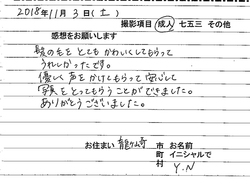 2018年11月3日(土)
撮影項目 成人 七五三 その他
感想をお願いします
髪の毛をとてもかわいくしてもらって
うれしかったです。
優しく声をかけてもらって安心して
写真をとってもらうことができました。
ありがとうございました。
お住まい 龍ヶ崎 市町村 お名前 イニシャルで
Y.N